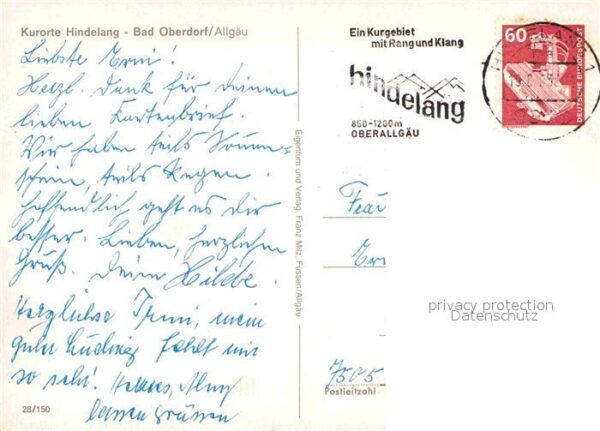 Kurorte Hindelang - Bad Oberdorf/Allgäu
Liebste Erni!
Herzl. Dank für Deinen
lieben Kartenbrief.
Wir haben teils Sonnen-
schein, teils Regen.
hoffendlich geht es dir
besser. Lieben, herzlichen
Gruß. Deine Hilde.
Herzlichst, mein
guter Ludwig fehlt mir
so sehr!
lassen grüssen
28/150
Eigentum und Verlag, Franz Milz, Füssen/Allgäu
Ein Kurgebiet
mit Rang und Klang
hindelang
850-1200m
OBERALLGÄU
60
DEUTSCHE BUNDESPOST
1
Frau
privacy protection
Datenschutz
7505
Postleitzahl